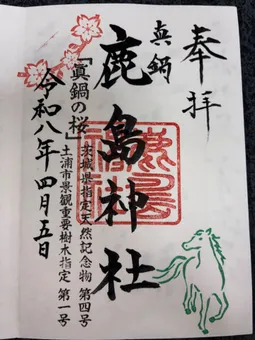 奉拝
真鍋
鹿島神社
「真鍋の桜」
茨城県指定天然記念物 第四号
土浦市景観重要樹木指定 第一号
令和八年四月五日